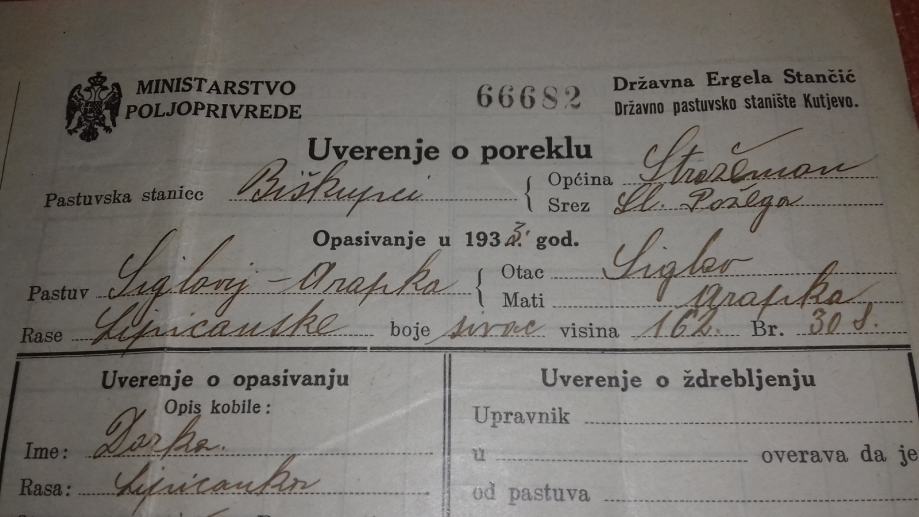 MINISTARSTVO
POLJOPRIVREDE
66682
Državna Ergela Stančić
Državno pastuvsko stanište Kutjevo.
Uverenje o poreklu
Pastuvska stanica Biškupci
Općina Stražeman
Srez Sl. Požega
Opasivanje u 193 god.
Pastuv Siglavij - Arapka
Otac Siglav
Mati Arapka
Rase Lipicanske boje sivac visina 162. Br. 308.
Uverenje o opasivanju
Opis kobile:
Ime: Dorka.
Rasa: Lipicanka
Uverenje o ždrebljenju
Upravnik
u overava da je
od pastuva